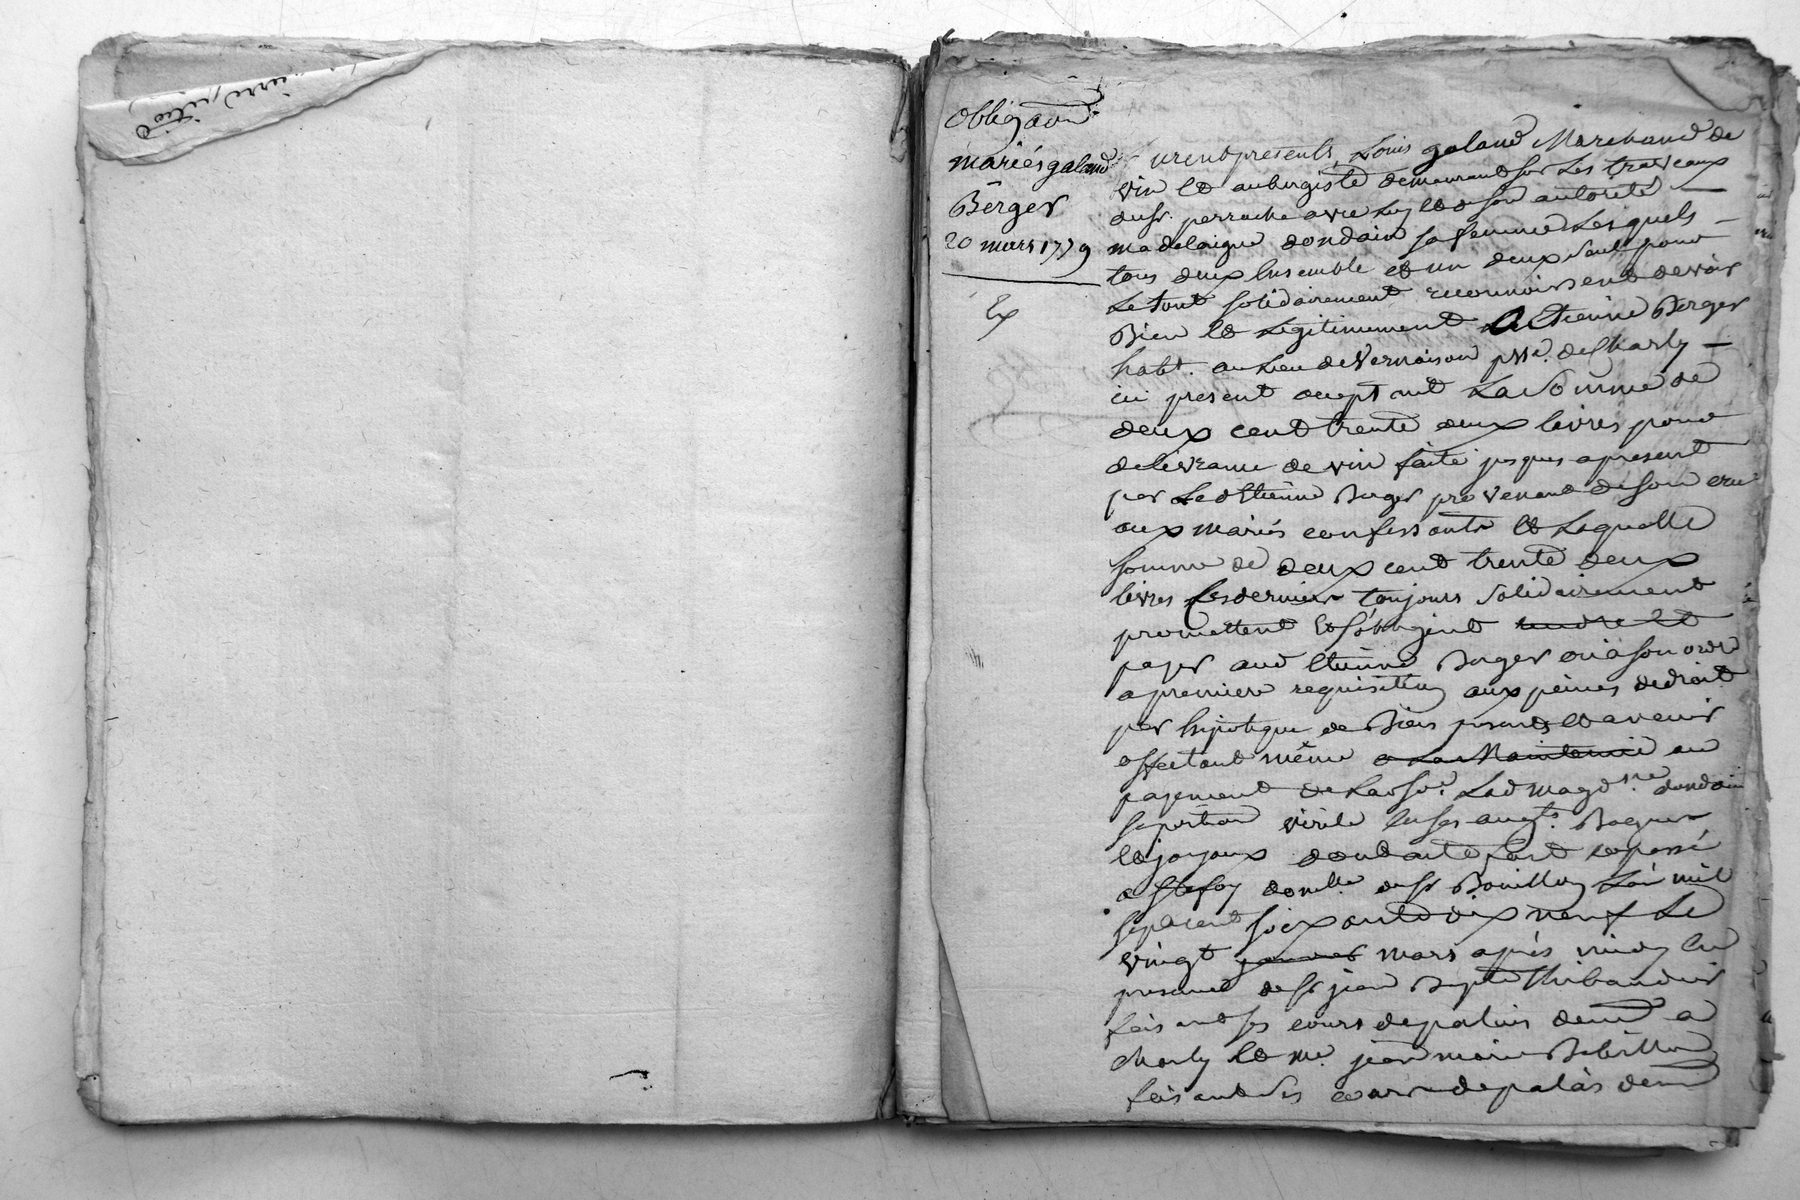 obligaon
mariés galand
Berger
20 mars 1779
Ex
urent presents Louis galand Marchand de
vin et aubergiste demeurant sur Les traveaux
du sr. perrache avec luy et de son autorité
madelaigne dondain sa femme Lesquels
tous deux Ensemble et un deux seul pour
Le tout solidairement reconnoissent devoir
Bien et Legitimement a Etienne Berger
habt. au Lieu de Vernaison psse. de Charly
ici present aceptant La somme de
deux cent trente deux livres pour
delivrance de vin faite jusques apresent
par Led Etienne Berger provenant de son cru
aux mariés confessants et Laquelle
somme de deux cent trente deux
livres ces derniers toujours solidairement
promettent et s'obligent rendre et
payer aud Etienne Berger ou à son ordre
a premiere requisition aux peines de droit
par hipoteque de Biens presents et avenir
affectant même a La Maintenüe au
payement de Lad so.e Lad magd.ne dondain
sa portion virile en ses augts. Bagues
et joyaux dont acte fait et passé
a Ste foy domlle. du sr Bouillon L'an mil
sept cent soixante dix neuf Le
vingt janvier mars après midy En
presence de sr jean Bapte Thibaudier
faisant ses cours de palais demt a
Charly et me. jean marie
faisant ses cours de palais demt